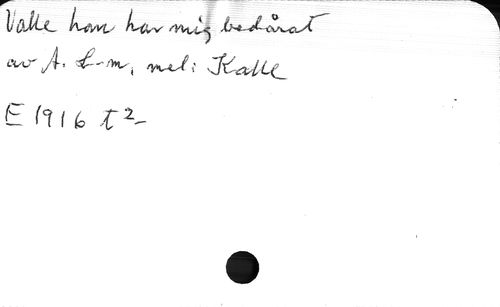 Valle han har mig bedårat
av A. L-m, mel: Kalle
E 1916 t 2-